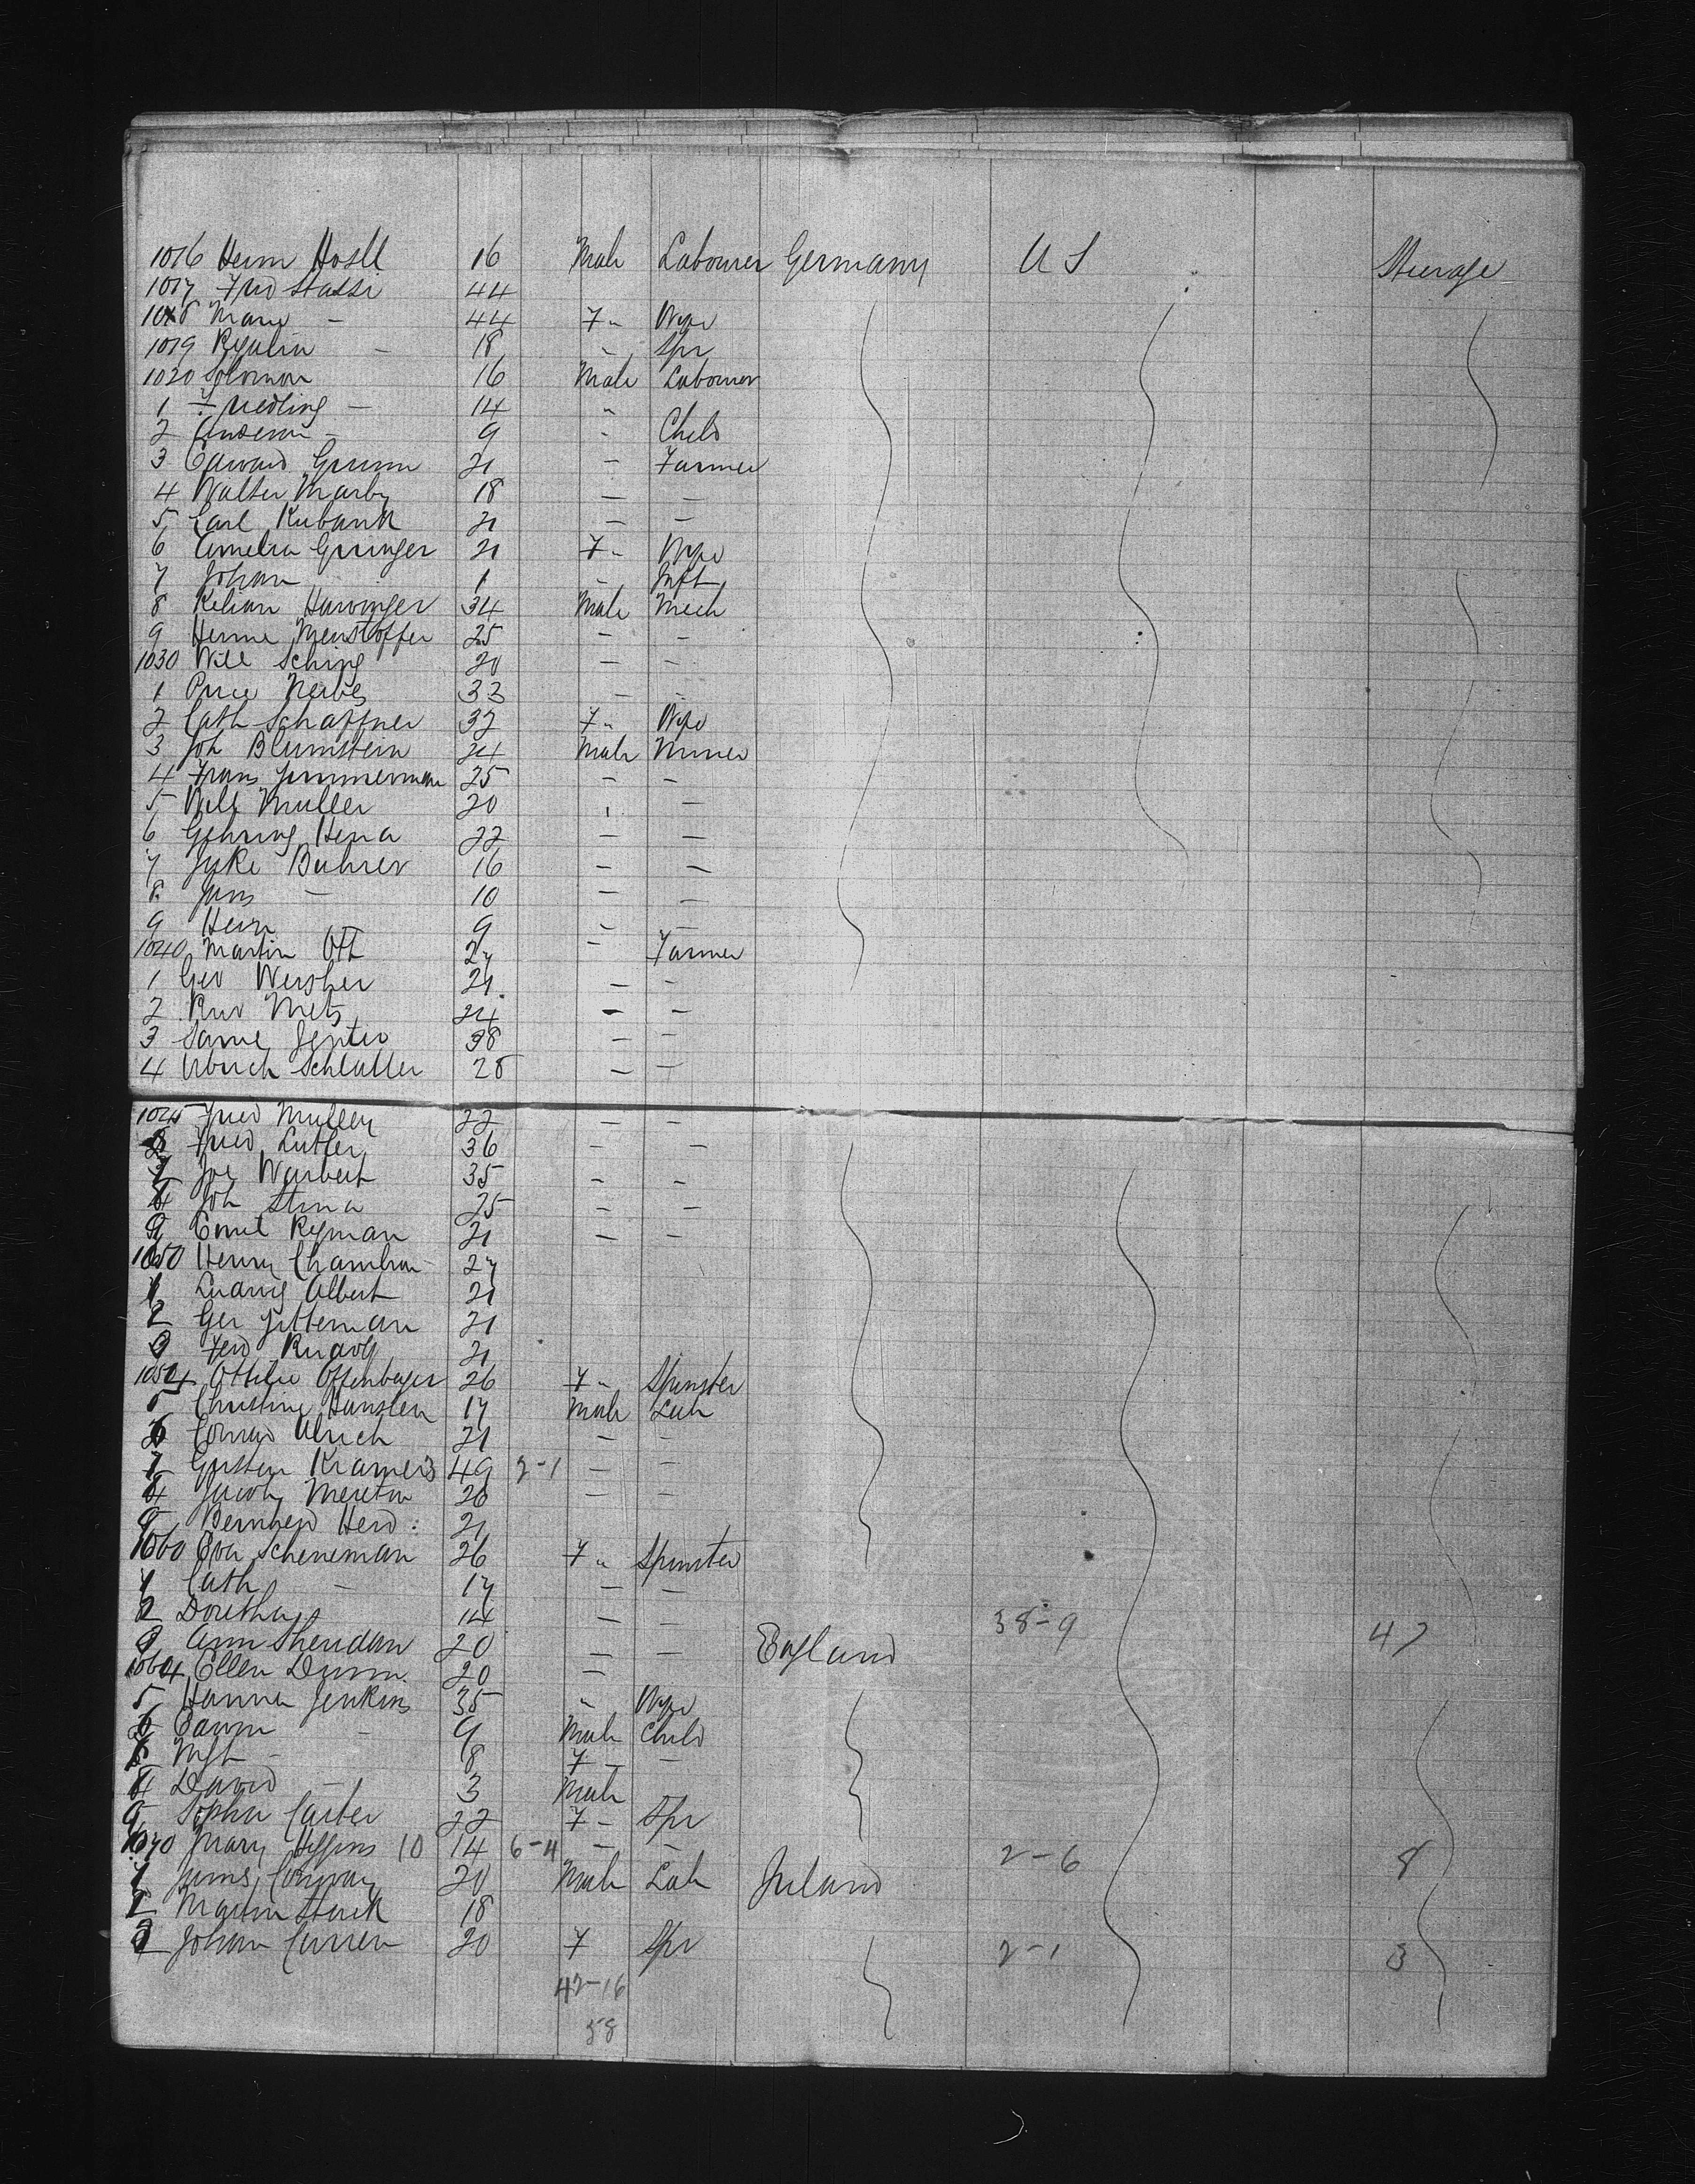 1016 Herm Hosll 16 Male Labourer Germany U S Steerage
1017 Fred Stassr 44
1018 Marie - 44 F " Wife
1019 - 18 - Spr
1020 Solomon 16 Male Labourer
1 - 14 "
2 - 9 " Child
3 Edward Grunn 21 - Farmer
4 Walter Marby 18 - -
5 Carl Kubank 21 - -
6 Amelia Gruinger 21 F " Wife
7 Johan 1 - Inft
8 Kilian Harvinger 34 Male Mech
9 25 - -
1030 Will Sching 20 - -
1 33 - -
2 Cath Schaffner 32 F " Wife
3 Joh Blumstein 24 Male Miner
4 Frans Zimmerman 25 - -
5 Will Muller 20 " -
6 Gehring Hena 22 - -
7 Jake Buhrer 16 - -
8 Jams - 10 - -
9 Henry 9 - -
1040 Martin Ott 27 - Farmer
1 Geo Weisher 21 - -
2 Metz 24 - -
3 38 - -
4 Ulrich Schlatter 28 - -
1045 Fred Mulley 22 - -
6 Fred Lutler 36 - -
7 Joe Warbert 35 - -
8 Joh 25 - -
9 Emil Ryman 21 - -
1050 Henry 27
1 Ludwig Albert 21
2 Geo Jitteman 21
3 Ferd Rudolf 21
1054 Ottilie Offenbager 26 F " Spinster
5 Christing Hanslen 17 Male Lab
6 Conrad Ulrich 21 - -
7 Gustav Kramers 49 2-1 - -
8 26 - -
9 Bernherd Herd 21
1060 Eva Scheneman 26 F " Spinster
1 Cath - 17 - -
2 Dorethay 14 - - 38-9 47
3 Ann Sheridan 20 - - England
1064 Ellen Dunn 20 -
5 Hanna Jenkins 35 " Wife
6 - 9 Male Child
7 Mgt - 8 F - -
8 David - 3 Male
9 Sophia Carter 22 F - Spr
1070 Mary Higgins 10 14 6-4 - - 2-6 8
1 Jams Conway 20 Male Lab Ireland
2 Martin Stack 18
3 Johan Curren 20 F Spr 2-1 3
42-16
58